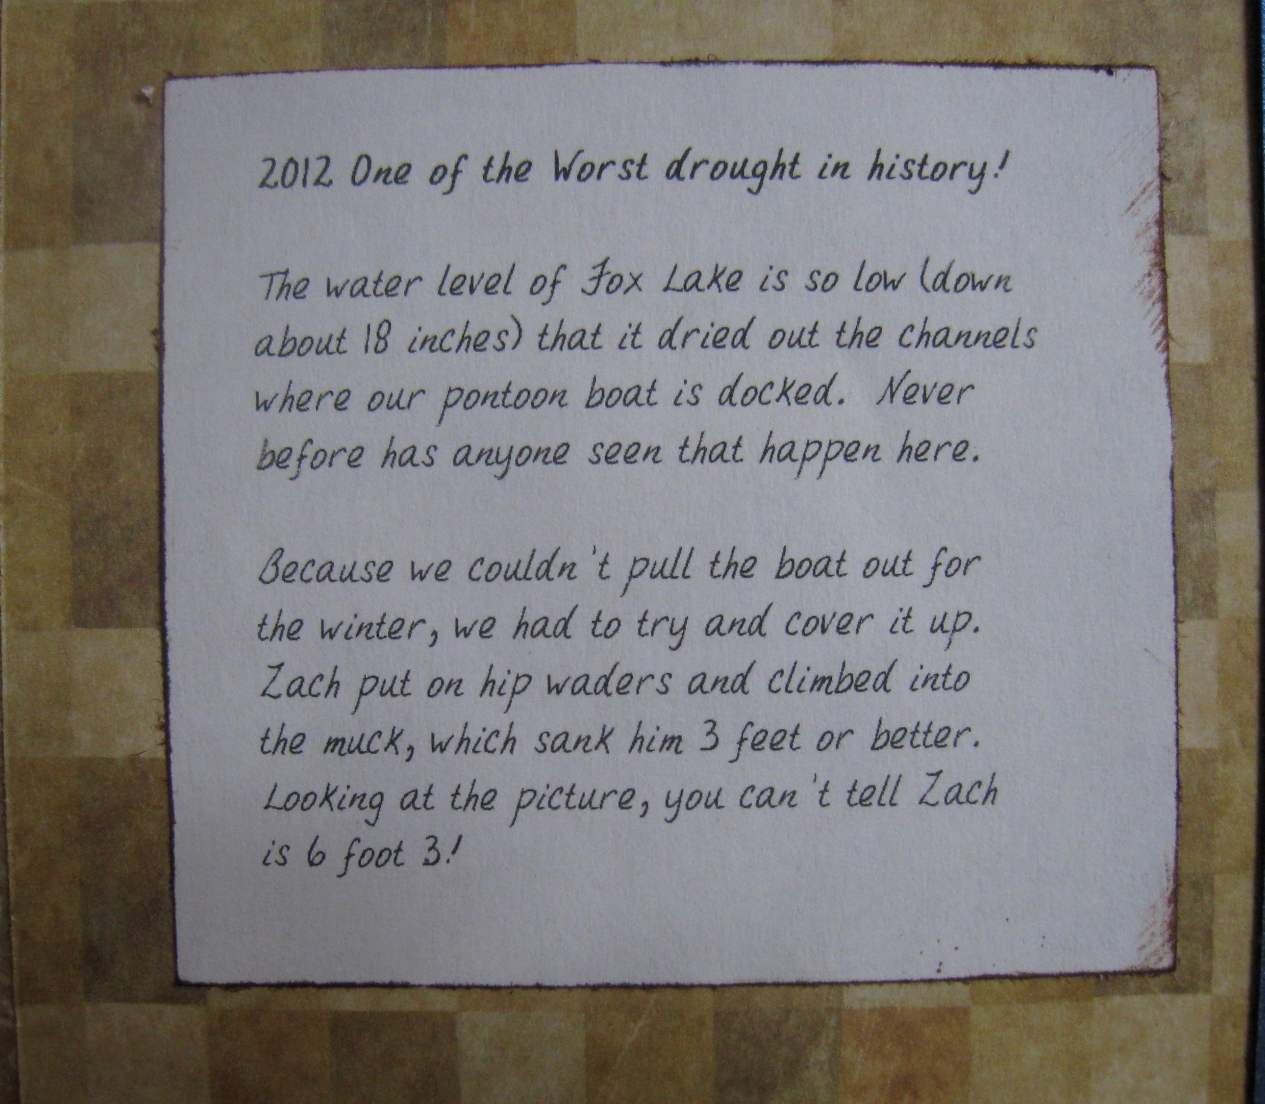 2012 One of the Worst drought in history!
The water level of Fox Lake is so low (down
about 18 inches) that it dried out the channels
where our pontoon boat is docked. Never
before has anyone seen that happen here.
Because we couldn't pull the boat out for
the winter, we had to try and cover it up.
Zach put on hip waders and climbed into
the muck, which sank him 3 feet or better.
Looking at the picture, you can't tell Zach
is 6 foot 3!